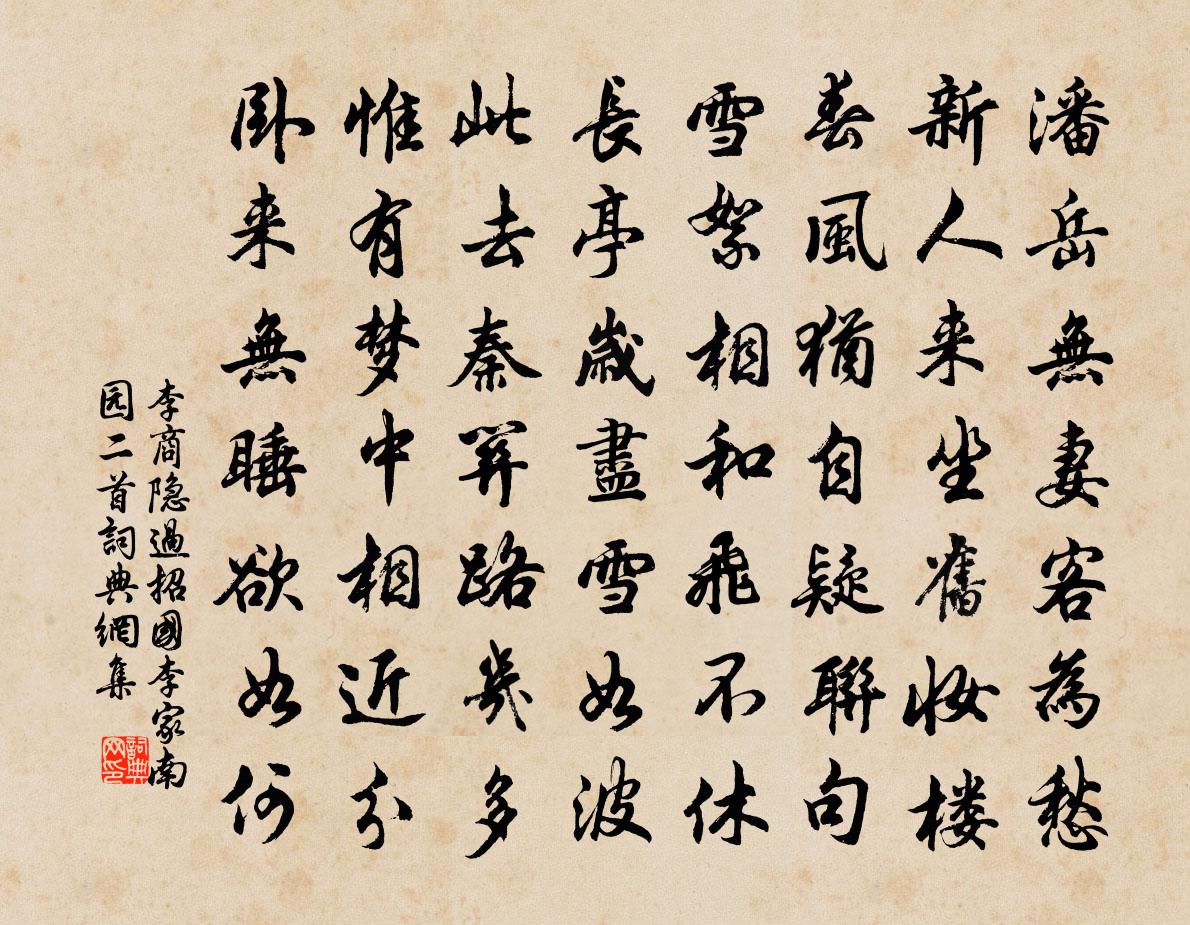 潘岳無妻客為愁
新人来坐舊妆楼
春風猶自疑聯句
雪絮相和飛不休
長亭歲盡雪如波
此去秦關路幾多
惟有梦中相近分
卧来無睡欲如何
李商隐過招國李家南
园二首詞典網集
詞典
网印